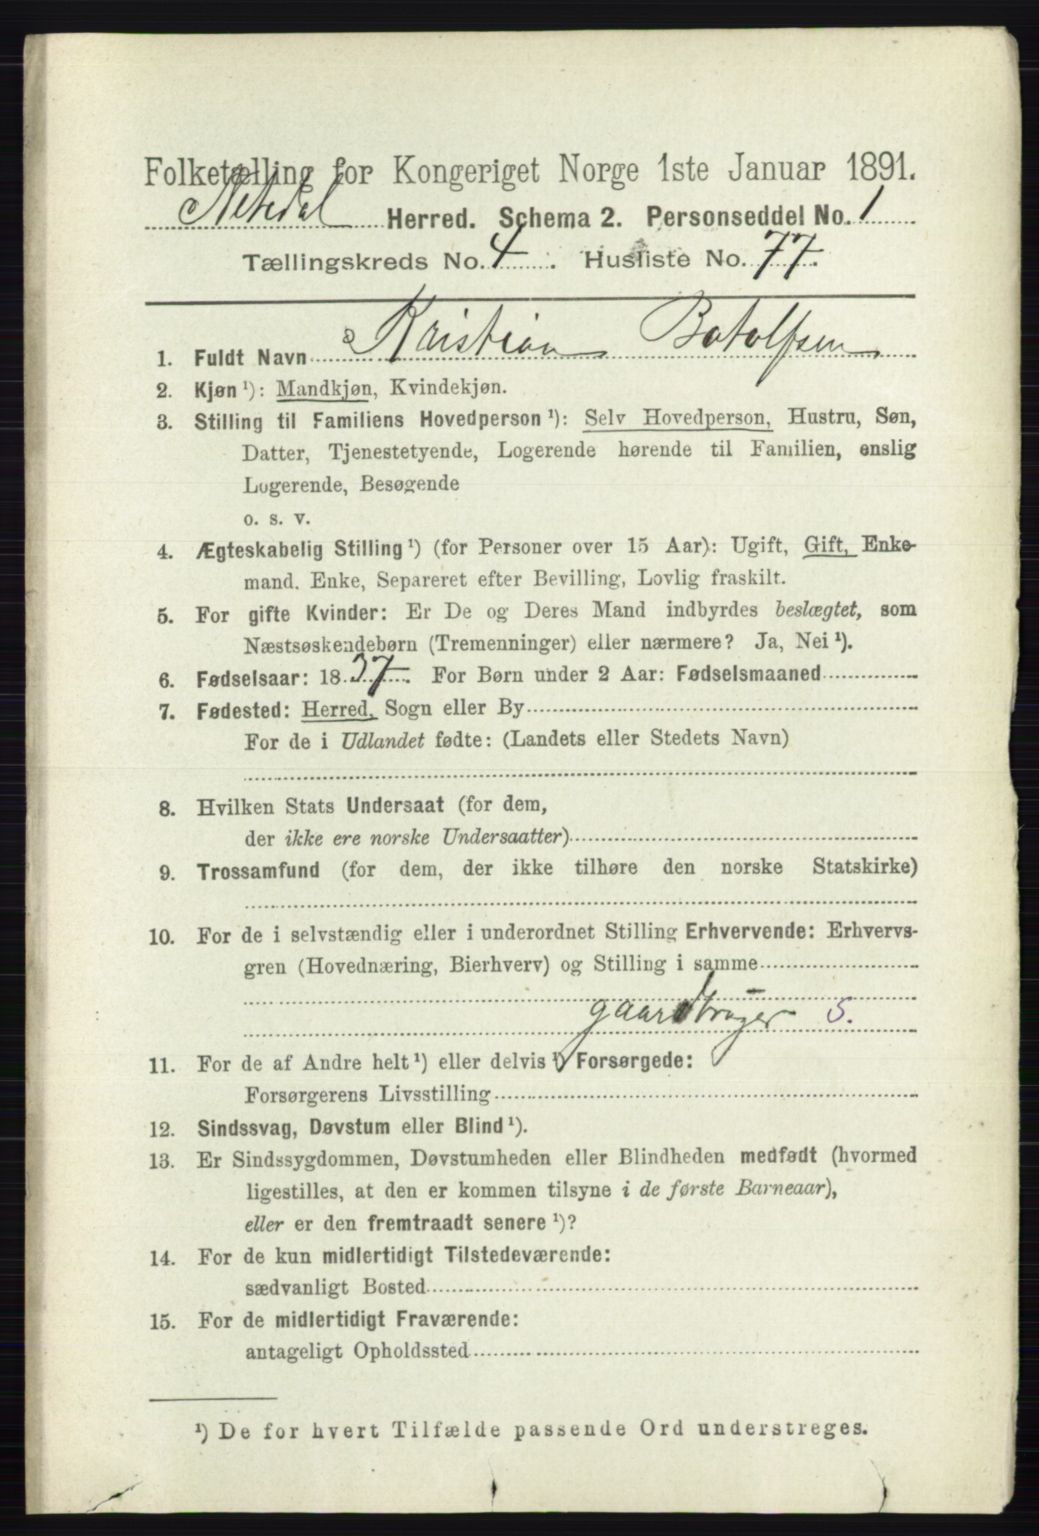 Folketælling for Kongeriget Norge 1ste Januar 1891.
Nitedal Herred. Schema 2. Personseddel No. 1
Tællingskreds No. 4. Husliste No. 77.
1. Fuldt Navn Kristian Botolfsen
2. Kjøn ¹): Mandkjøn, Kvindekjøn.
3. Stilling til Familiens Hovedperson ¹): Selv Hovedperson, Hustru, Søn,
Datter, Tjenestetyende, Logerende hørende til Familien, enslig
Logerende, Besøgende
o. s. v.
4. Ægteskabelig Stilling ¹) (for Personer over 15 Aar): Ugift, Gift, Enke-
mand. Enke, Separeret efter Bevilling, Lovlig fraskilt.
5. For gifte Kvinder: Er De og Deres Mand indbyrdes beslægtet, som
Næstsøskendebørn (Tremenninger) eller nærmere? Ja, Nei ¹).
6. Fødselsaar: 1837. For Børn under 2 Aar: Fødselsmaaned
7. Fødested: Herred, Sogn eller By
For de i Udlandet fødte: (Landets eller Stedets Navn)
8. Hvilken Stats Undersaat (for dem,
der ikke ere norske Undersaatter)
9. Trossamfund (for dem, der ikke tilhøre den norske Statskirke)
10. For de i selvstændig eller i underordnet Stilling Erhvervende: Erhvervs-
gren (Hovednæring, Bierhverv) og Stilling i samme
gaardbruger S.
11. For de af Andre helt ¹) eller delvis ¹) Forsørgede:
Forsørgerens Livsstilling
12. Sindssvag, Døvstum eller Blind ¹).
13. Er Sindssygdommen, Døvstumheden eller Blindheden medfødt (hvormed
ligestilles, at den er kommen tilsyne i de første Barneaar),
eller er den fremtraadt senere ¹)?
14. For de kun midlertidigt Tilstedeværende:
sædvanligt Bosted
15. For de midlertidigt Fraværende:
antageligt Opholdssted
¹) De for hvert Tilfælde passende Ord understreges.